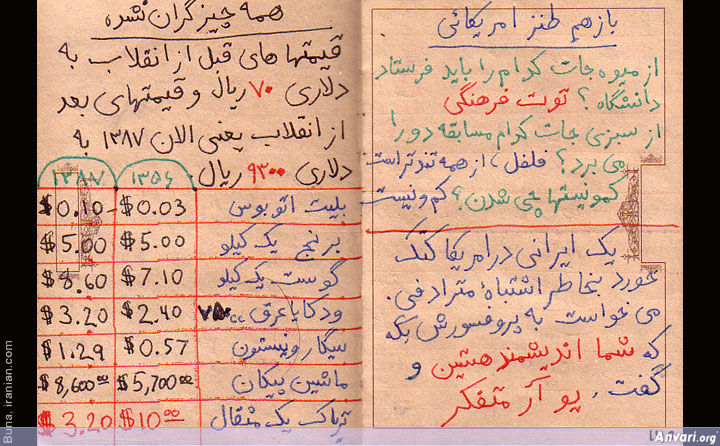 بازهم طنز امریکائی
از میوه جات کدام را باید فرستاد
دانشگاه؟ توت فرهنگی
از سبزی جات کدام مسابقه دو را
می برد؟ فلفل، از همه تندتر است
کمونیستها چی شدن؟ کم و نیست
یک ایرانی در امریکا کتک
خورد بخاطر اشتباهٔ مترادفی.
می خواست به پروفسورش بگه
که شما اندیشمند هستین و
گفت، یو آر متفکر
همه چیز گران نشده
قیمتها های قبل از انقلاب به
دلاری ۷۰ ریال و قیمتهای بعد
از انقلاب یعنی الان ۱۳۸۷ به
دلاری ۹۳۰۰ ریال.
۱۳۵۶ ۱۳۸۷
بلیت اتوبوس $0.03 $0.10
برنج یک کیلو $5.00 $5.00
گوشت یک کیلو $7.10 $8.60
ودکا یا عرق ۷۵۰cc $2.40 $3.20
سیگار وینستون $0.57 $1.29
ماشین پیکان $5,700.00 $8,600.00
تریاک یک مثقال $10.00 $3.20
Buna, iranian.com
Anvari.org